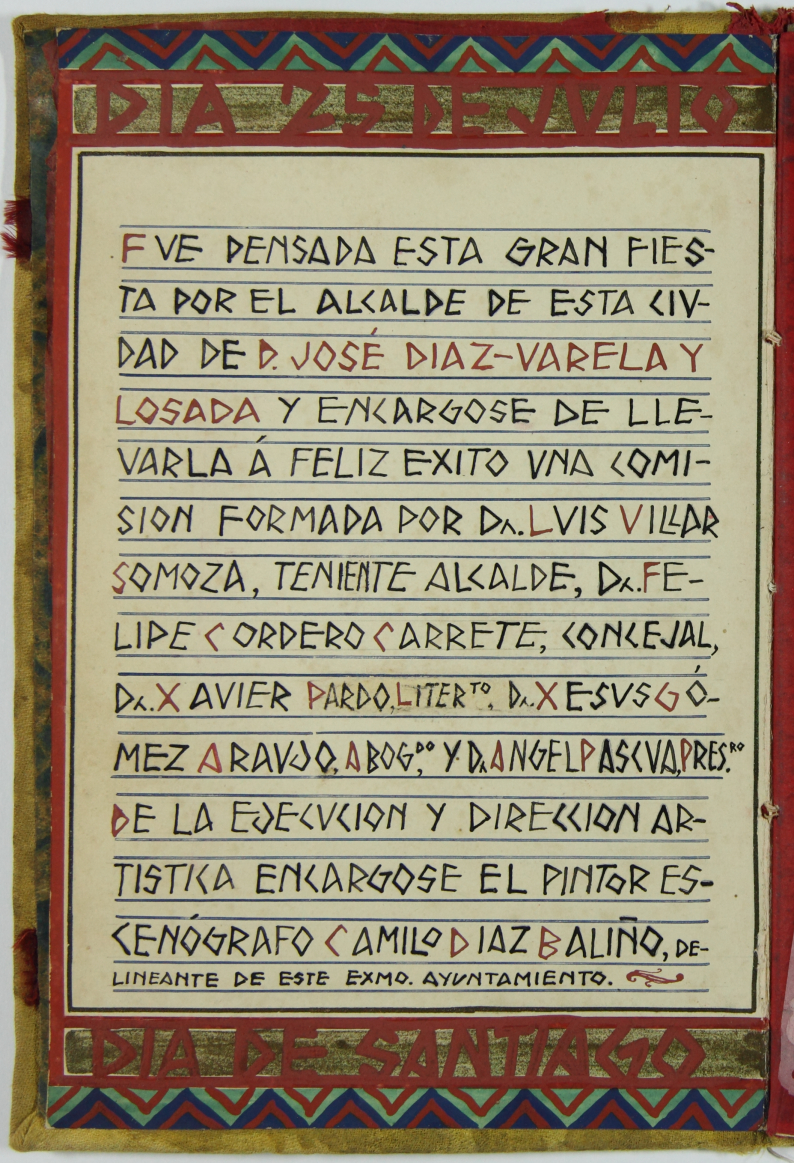 DIA 25 DE JVLIO
FVE PENSADA ESTA GRAN FIES-
TA POR EL ALCALDE DE ESTA CIV-
DAD DE D. JOSÉ DIAZ-VARELA Y
LOSADA Y ENCARGOSE DE LLE-
VARLA Á FELIZ EXITO VNA COMI-
SION FORMADA POR Dn. LVIS VILLAR
SOMOZA, TENIENTE ALCALDE, Dn. FE-
LIPE CORDERO CARRETE, CONCEJAL,
Dn. XAVIER PARDO, LITERTO. Dn. XESVS GÓ-
MEZ ARAVJO, ABOG.DO Y Dn ANGEL PASCVA, PRES.RO
DE LA EJECVCION Y DIRECCION AR-
TISTICA ENCARGOSE EL PINTOR ES-
CENÓGRAFO CAMILO DIAZ BALIÑO, DE-
LINEANTE DE ESTE EXMO. AYVNTAMIENTO.
DIA DE SANTIAGO